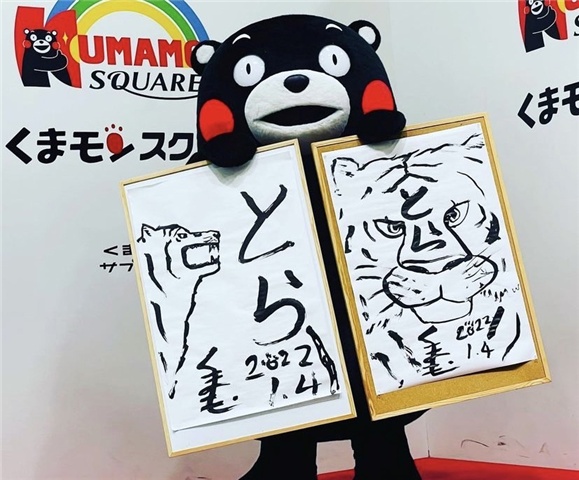 KUMAMO
SQUARE
くまモンスク
くま
サブ
とら
くま
モン
2022
1.4
とら
くま
モン
2022
1.4
くま